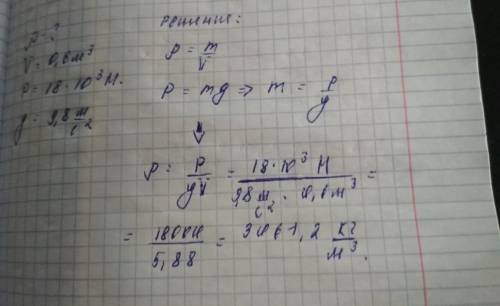 ρ - ?
V = 0,6 м³
P = 18 · 10³ Н.
g = 9,8 м/с²
Решение:
ρ = m/V
P = mg => m = P/g
↓
ρ = P/gV = 18 · 10³ Н / 9,8 м/с² · 0,6 м³ =
= 18000 / 5,88 = 3061,2 кг/м³.